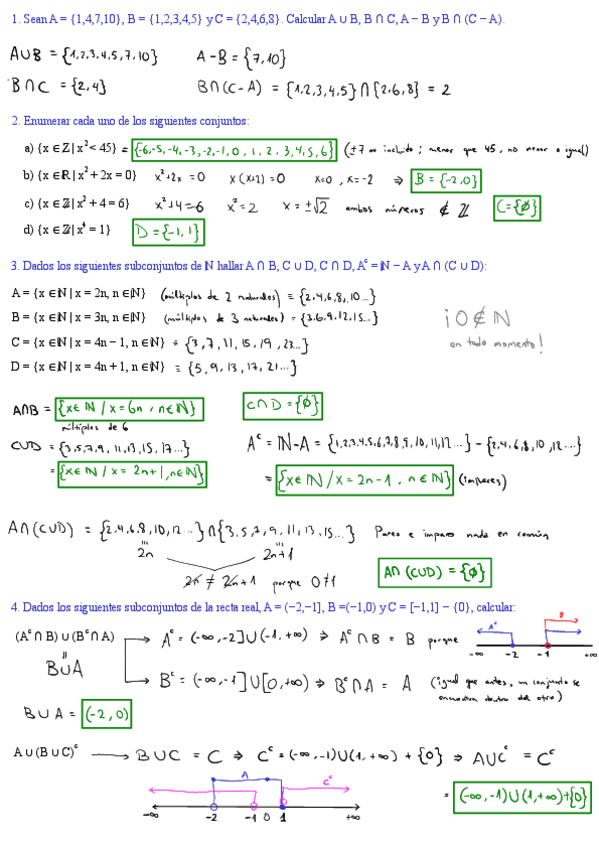 1. Sean A = {1,4,7,10}, B = {1,2,3,4,5} y C = {2,4,6,8}. Calcular A ∪ B, B ∩ C, A – B y B ∩ (C – A).
A∪B = {1,2,3,4,5,7,10} A-B = {7,10}
B∩C = {2,4} B∩(C-A) = {1,2,3,4,5}∩{2,6,8} = 2
2. Enumerar cada uno de los siguientes conjuntos:
a) {x ∈ ℤ | x² < 45} = {-6,-5,-4,-3,-2,-1,0,1,2,3,4,5,6} (±7 no incluido; menor que 45, no menor o igual)
b) {x ∈ ℝ | x² + 2x = 0} x²+2x=0 x(x+2)=0 x=0, x=-2 ⇒ B = {-2,0}
c) {x ∈ ℤ | x² + 4 = 6} x²+4=6 x²=2 x=±√2 ambos números ∉ ℤ C={∅}
d) {x ∈ ℤ | x⁴ = 1} D={-1,1}
3. Dados los siguientes subconjuntos de ℕ hallar A ∩ B, C ∪ D, C ∩ D, Aᶜ = ℕ – A y A ∩ (C ∪ D):
A = {x ∈ ℕ | x = 2n, n ∈ ℕ} (múltiplos de 2 naturales) = {2,4,6,8,10...}
B = {x ∈ ℕ | x = 3n, n ∈ ℕ} (múltiplos de 3 naturales) = {3,6,9,12,15...}
¡0∉ℕ
C = {x ∈ ℕ | x = 4n – 1, n ∈ ℕ} = {3,7,11,15,19,23...}
en todo momento!
D = {x ∈ ℕ | x = 4n + 1, n ∈ ℕ} = {5,9,13,17,21...}
A∩B = {x∈ℕ / x=6n, n∈ℕ} C∩D={∅}
múltiplos de 6
C∪D = {3,5,7,9,11,13,15,17...} Aᶜ = ℕ-A = {1,2,3,4,5,6,7,8,9,10,11,12...} - {2,4,6,8,10,12...}
= {x∈ℕ / x=2n+1, n∈ℕ} = {x∈ℕ / x=2n-1, n∈ℕ} (impares)
A∩(C∪D) = {2,4,6,8,10,12...}∩{3,5,7,9,11,13,15...} Pares e impares nada en común
2n 2n+1
2n ≠ 2n+1 porque 0≠1 A∩(C∪D)={∅}
4. Dados los siguientes subconjuntos de la recta real, A = (–2,–1], B =(–1,0) y C = [–1,1] – {0}, calcular:
(Aᶜ ∩ B) ∪ (Bᶜ ∩ A) Aᶜ = (-∞,-2]∪(-1,+∞) ⇒ Aᶜ∩B = B porque
Aᶜ B
-∞ -2 -1 +∞
B∪A
Bᶜ = (-∞,-1]∪[0,+∞) ⇒ Bᶜ∩A = A (igual que antes, un conjunto se
encuentra dentro del otro)
B∪A = (-2,0)
A ∪ (B ∪ C)ᶜ B∪C = C ⇒ Cᶜ = (-∞,-1)∪(1,+∞) + {0} ⇒ A∪Cᶜ = Cᶜ
A Cᶜ
= (-∞,-1)∪(1,+∞)+{0}
-∞ -2 -1 0 1 +∞